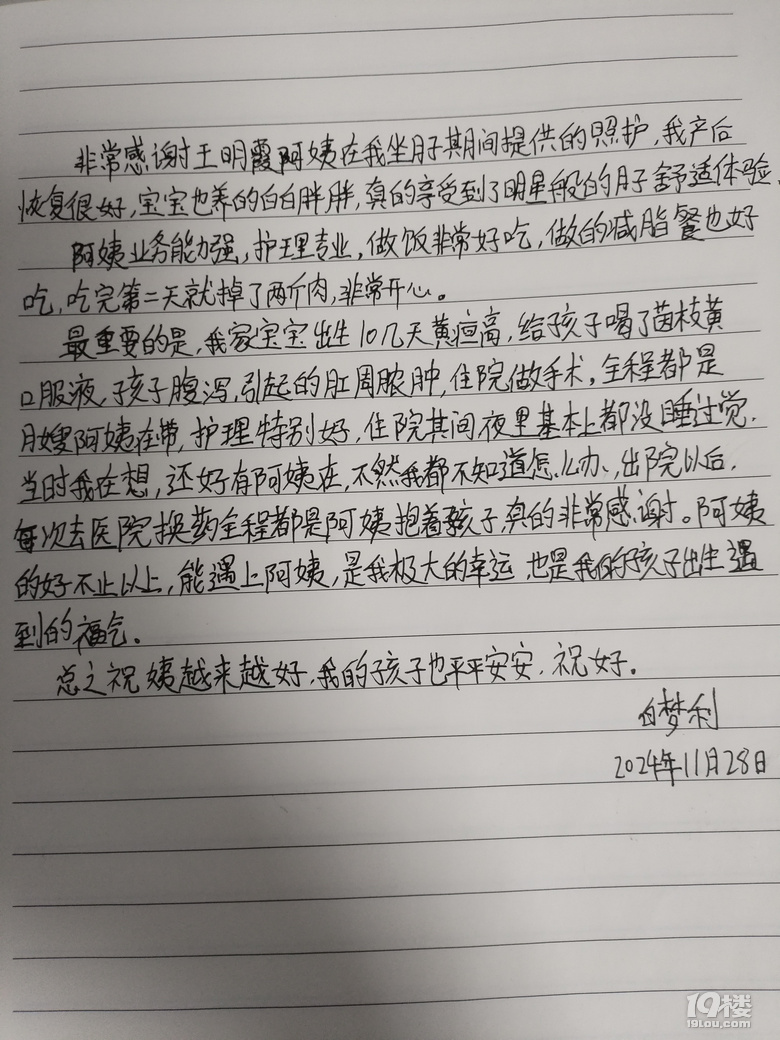 非常感谢王明霞阿姨在我坐月子期间提供的照护,我产后
恢复很好,宝宝也养的白白胖胖,真的享受到了明星般的月子舒适体验.
阿姨业务能力强,护理专业,做饭非常好吃,做的减脂餐也好
吃,吃完第二天就掉了两斤肉,非常开心。
最重要的是,我家宝宝出生10几天黄疸高,给孩子喝了茵枝黄
口服液,孩子腹泻,引起的肛周脓肿,住院做手术。全程都是
月嫂阿姨在带,护理特别好,住院其间夜里基本上都没睡过觉.
当时我在想,还好有阿姨在,不然我都不知道怎么办,出院以后,
每次去医院换药全程都是阿姨抱着孩子,真的非常感谢。阿姨
的好不止以上,能遇上阿姨,是我极大的幸运,也是我的孩子出生遇
到的福气。
总之祝姨越来越好,我的孩子也平平安安,祝好。
白梦利
2024年11月28日
19楼
19lou.com